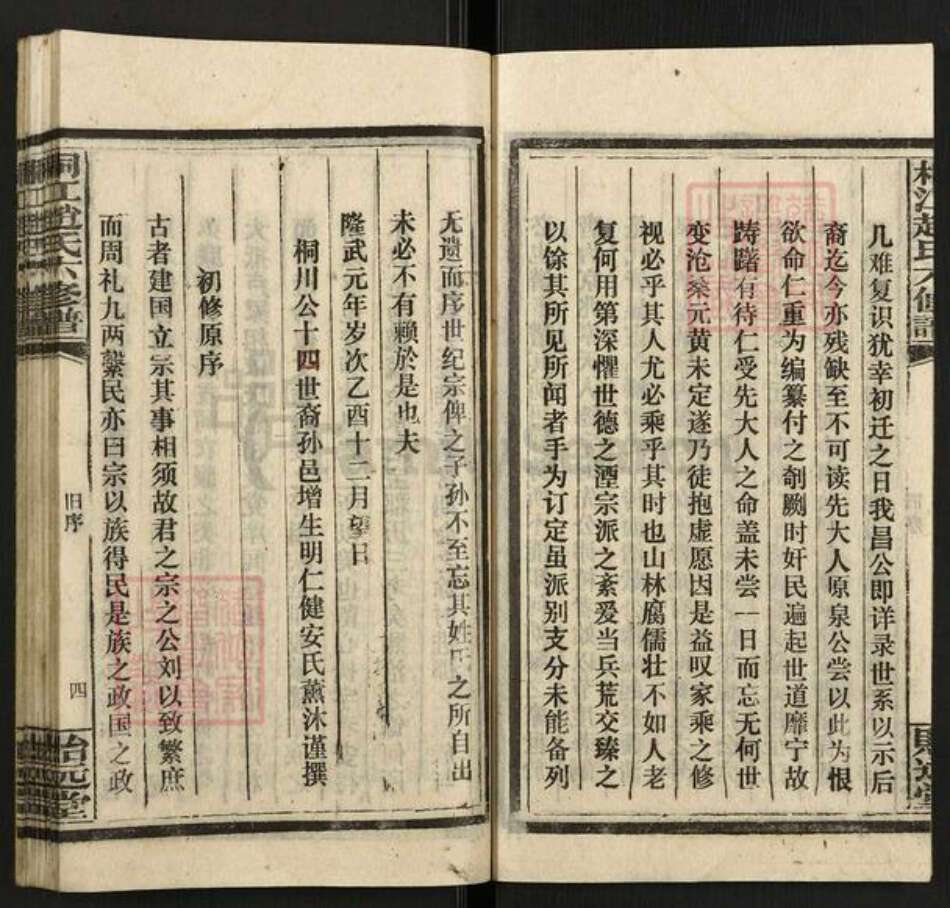 几难复识犹幸初迁之日我昌公即详录世系以示后
裔迄今亦残缺至不可读先大人原泉公尝以此为恨
欲命仁重为编纂付之剞劂时奸民遍起世道靡宁故
踌躇有待仁受先大人之命盖未尝一日而忘无何世
变沧桑元黄未定遂乃徒抱虚愿因是益叹家乘之修
视必乎其人尤必乘乎其时也山林腐儒壮不如人老
复何用第深惧世德之湮宗派之紊爰当兵荒交臻之
以馀其所见所闻者手为订定虽派别支分未能备列
无遗而序世纪宗俾之子孙不至忘其姓氏之所自出
未必不有赖於是也夫
隆武元年岁次乙酉十二月望日
桐川公十四世裔孙邑增生明仁健安氏薰沐谨撰
初修原序
古者建国立宗其事相须故君之宗之公刘以致繁庶
而周礼九两繫民亦曰宗以族得民是族之政国之政
桐江趙氏六修譜
旧序
四
貽远堂